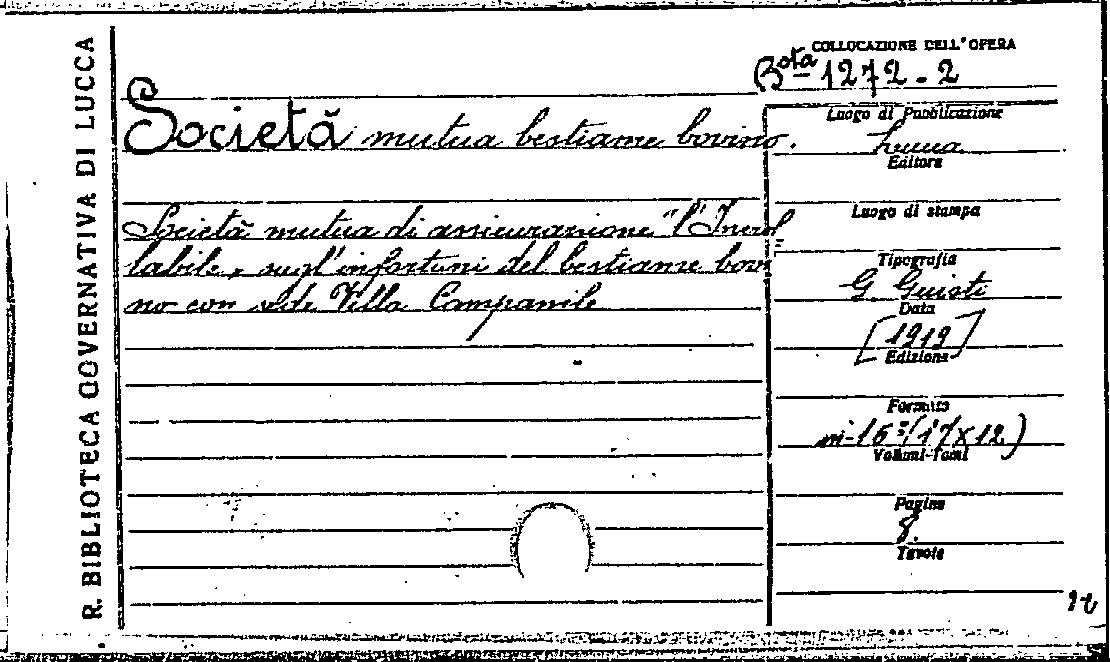 R. BIBLIOTECA GOVERNATIVA DI LUCCA
COLLOCAZIONE DELL'OPERA
Bta 1272-2
Società mutua bestiame bovino.
Società mutua di assicurazione "l'Incrol=
labile, sugl'infortuni del bestiame bovi=
no con sede Villa Campanile
Luogo di Pubblicazione
Lucca
Editore
Luogo di stampa
Tipografia
G. Guisti
Data
[1919]
Edizione
Formato
in-16º (17x12)
Volumi-Tomi
Pagine
8.
Tavole